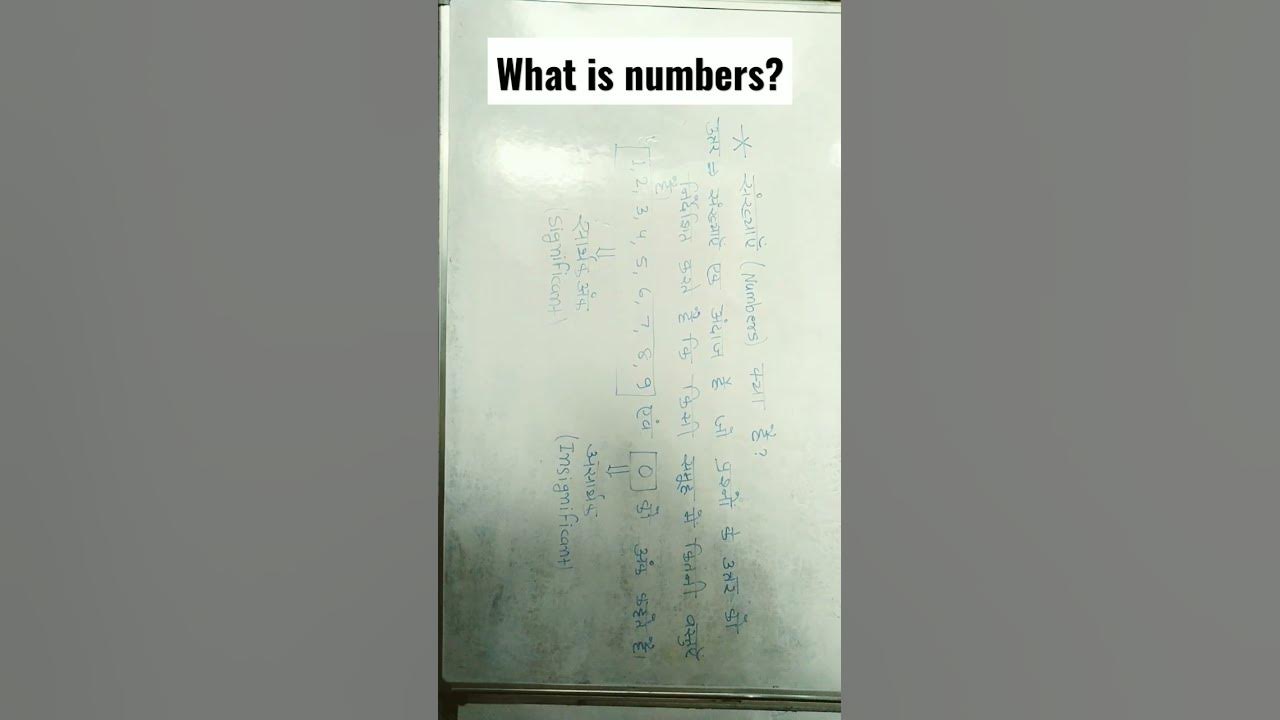 What is numbers?
* संख्याएं (Numbers) क्या है?
उत्तर ⇒ संख्याएं एक अंदाज है जो प्रश्नों के उत्तर को
निर्देशित करते है कि किसी समूह में कितनी वस्तुएं
है।
1, 2, 3, 4, 5, 6, 7, 8, 9 एवं 0 को अंक कहते है।
⇓ ⇓
सार्थक अंक असार्थक
(Significant) (Insignificant)